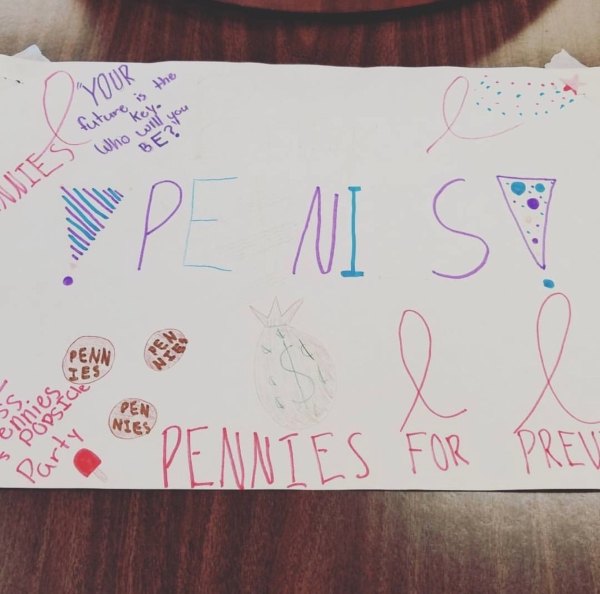 "YOUR
future is the
Key.
Who will you
BE?"
NNIES
! PENIS !
PENN
IES
PEN
NIES
PEN
NIES
$
ss.
ennies
s popsicle
Party
PENNIES FOR PREV